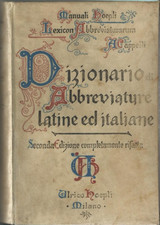 Manuali Hoepli
Lexicon Abbreviaturarum
A. Cappelli
Dizionario
di
Abbreviature
latine ed italiane
Seconda Edizione completamente rifatta
Ulrico Hoepli
Milano